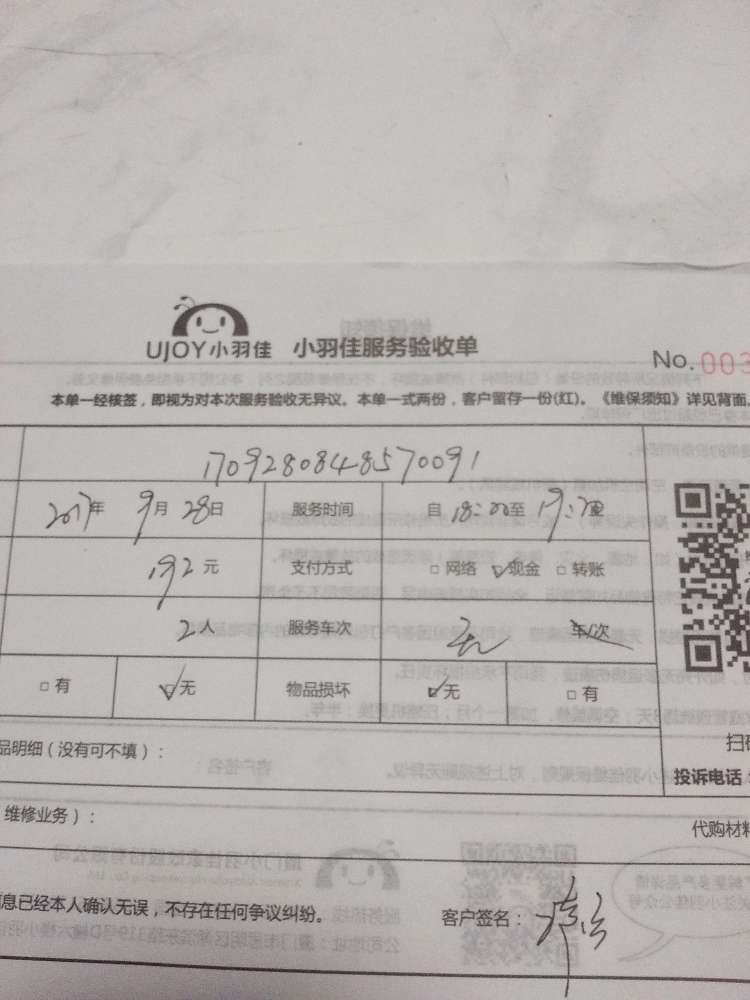 UJOY小羽佳 小羽佳服务验收单
No. 003
本单一经核签，即视为对本次服务验收无异议。本单一式两份，客户留存一份(红)。《维保须知》详见背面。
1709280848570091
2017年 9月 28日 服务时间 自 18:00至
192元 支付方式 □ 网络 ☑ 现金 □ 转账
2人 服务车次 无 车/次
□ 有 ☑ 无 物品损坏 ☑ 无 □ 有
品明细（没有可不填）：
扫码
投诉电话：
维修业务）：
代购材料
信息已经本人确认无误，不存在任何争议纠纷。 客户签名：